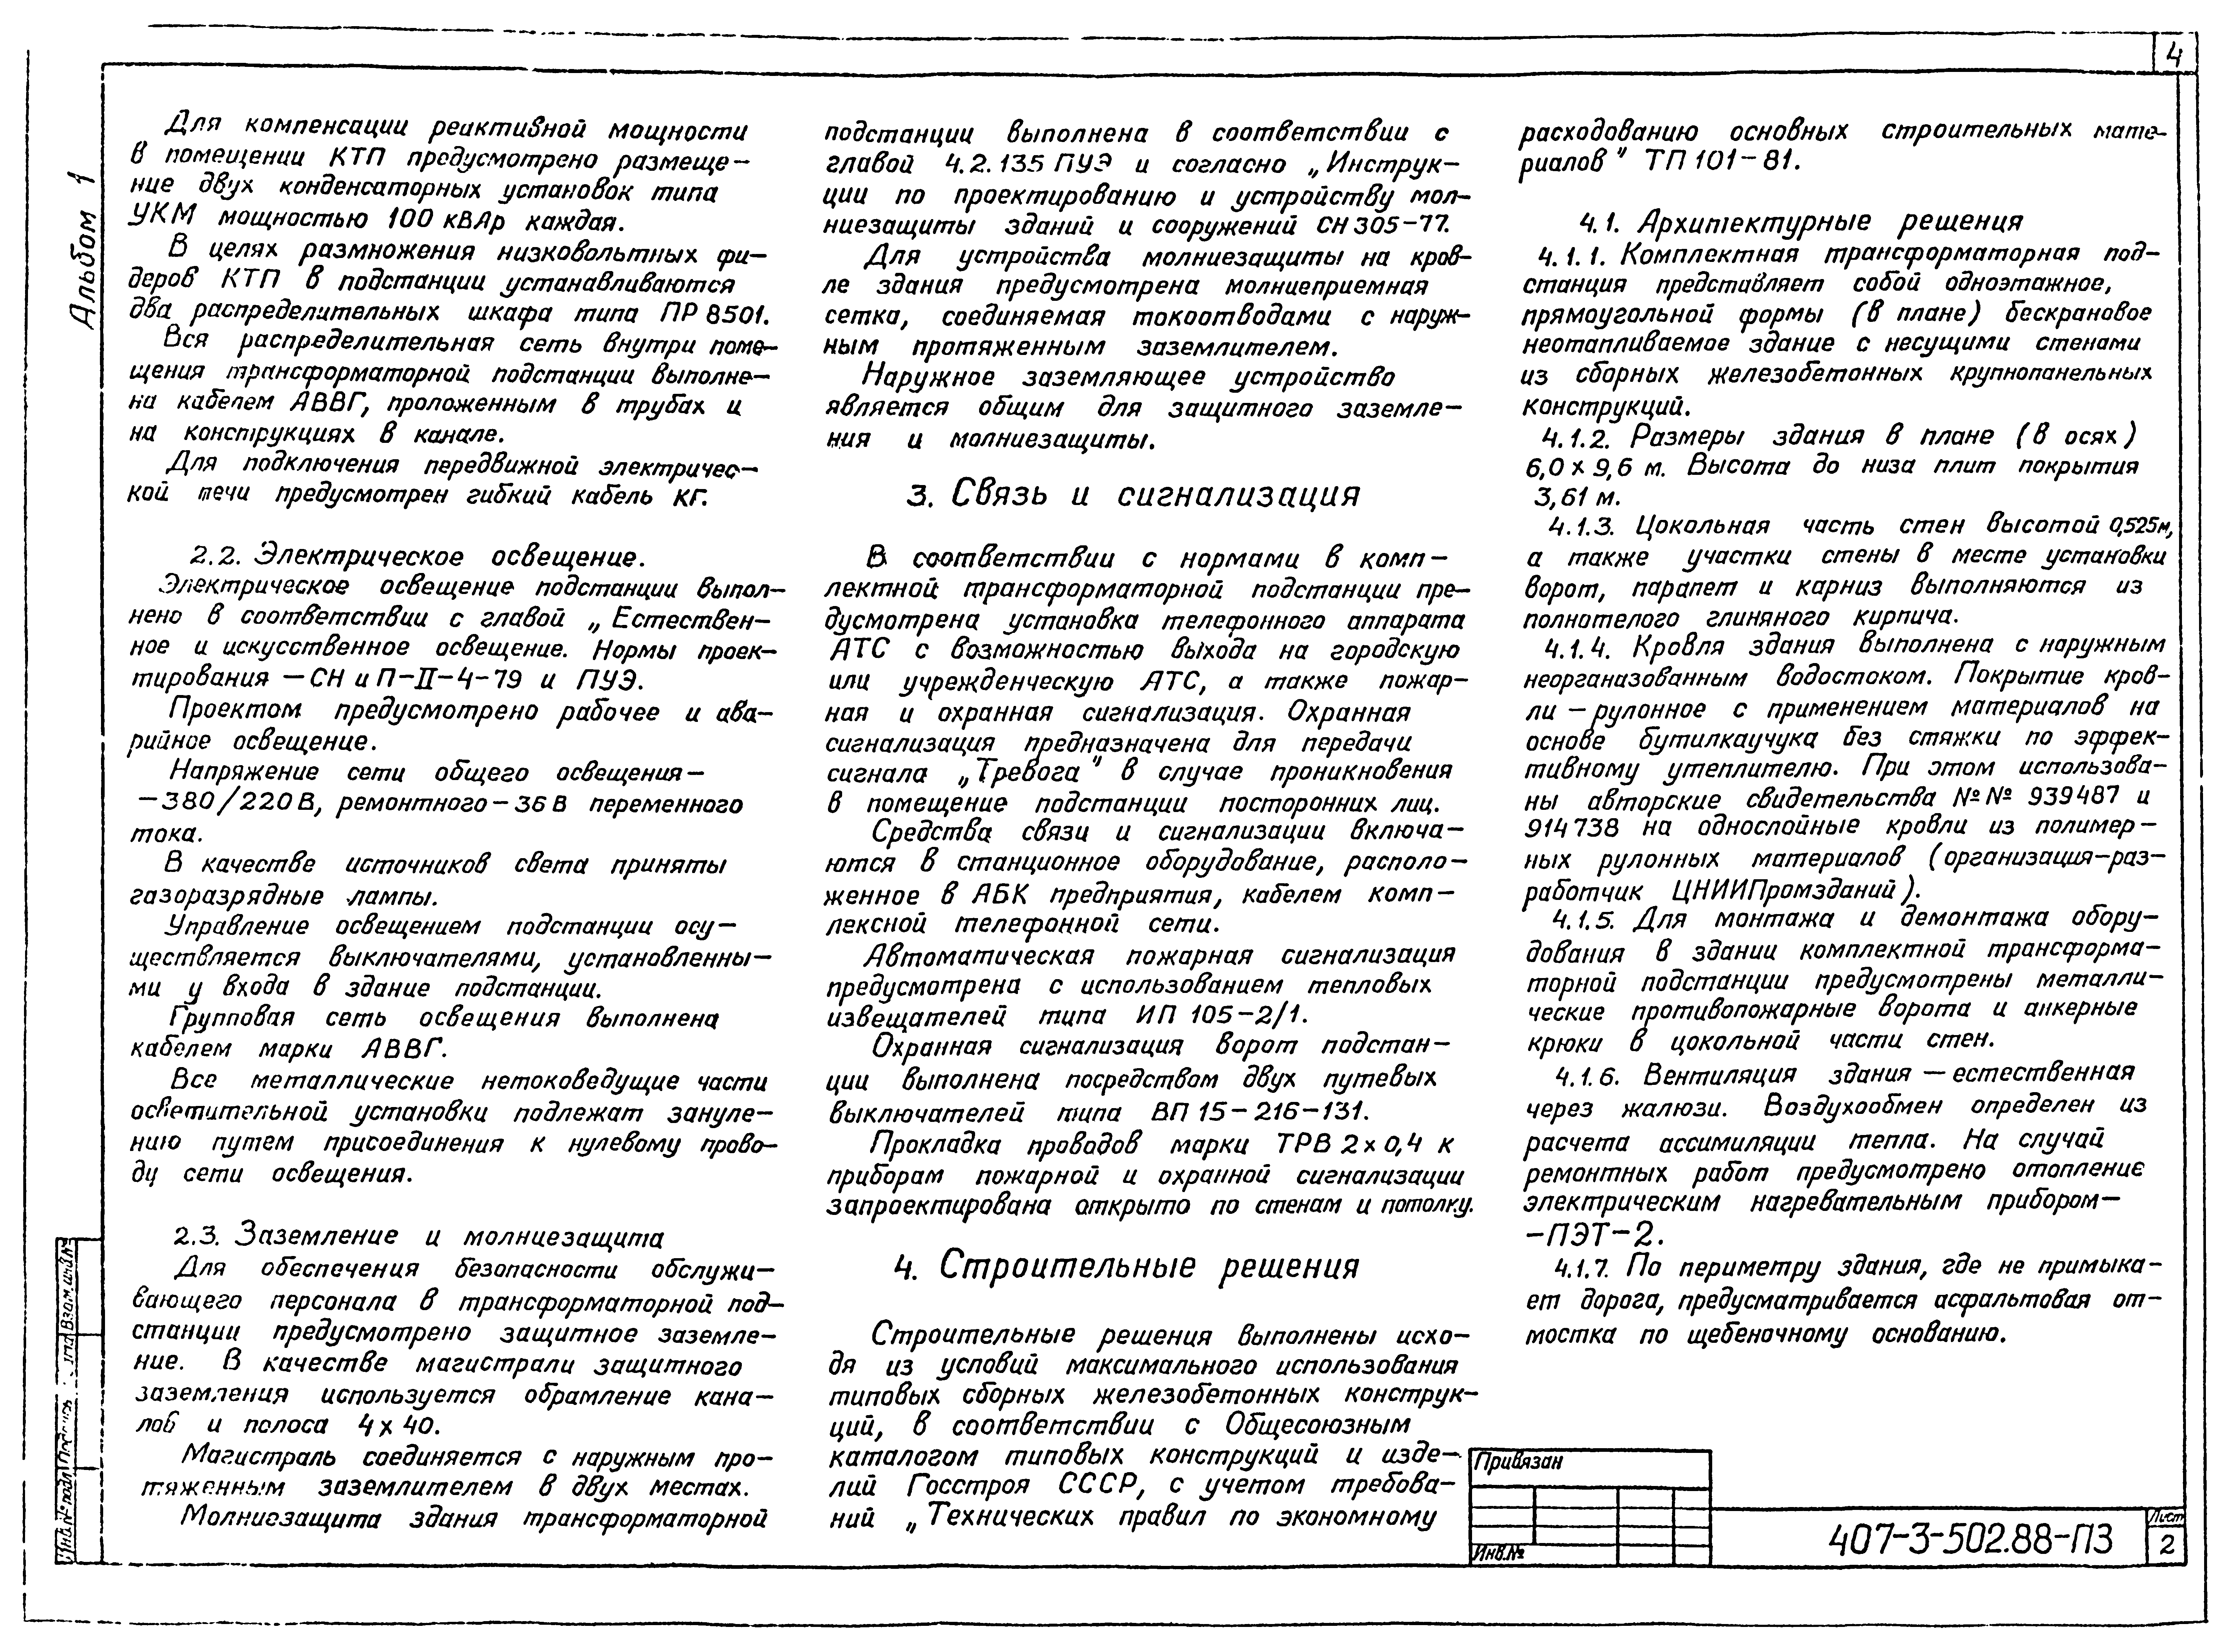 4
Альбом 1
Для компенсации реактивной мощности
в помещении КТП предусмотрено размеще-
ние двух конденсаторных установок типа
УКМ мощностью 100 кВАр каждая.
В целях размножения низковольтных фи-
деров КТП в подстанции устанавливаются
два распределительных шкафа типа ПР 8501.
Вся распределительная сеть внутри поме-
щения трансформаторной подстанции выполне-
на кабелем АВВГ, проложенным в трубах и
на конструкциях в канале.
Для подключения передвижной электричес-
кой печи предусмотрен гибкий кабель КГ.
2.2. Электрическое освещение.
Электрическое освещение подстанции выпол-
нено в соответствии с главой „Естествен-
ное и искусственное освещение. Нормы проек-
тирования – СН и П-II-4-79 и ПУЭ.
Проектом предусмотрено рабочее и ава-
рийное освещение.
Напряжение сети общего освещения-
-380/220 В, ремонтного - 36 В переменного
тока.
В качестве источников света приняты
газоразрядные лампы.
Управление освещением подстанции осу-
ществляется выключателями, установленны-
ми у входа в здание подстанции.
Групповая сеть освещения выполнена
кабелем марки АВВГ.
Все металлические нетоковедущие части
осветительной установки подлежат зануле-
нию путем присоединения к нулевому прово-
ду сети освещения.
2.3. Заземление и молниезащита
Для обеспечения безопасности обслужи-
вающего персонала в трансформаторной под-
станции предусмотрено защитное заземле-
ние. В качестве магистрали защитного
заземления используется обрамление кана-
лов и полоса 4 х 40.
Магистраль соединяется с наружным про-
тяженным заземлителем в двух местах.
Молниезащита здания трансформаторной
подстанции выполнена в соответствии с
главой 4.2.135 ПУЭ и согласно „Инструк-
ции по проектированию и устройству мол-
ниезащиты зданий и сооружений СН 305-77.
Для устройства молниезащиты на кров-
ле здания предусмотрена молниеприемная
сетка, соединяемая токоотводами с наруж-
ным протяженным заземлителем.
Наружное заземляющее устройство
является общим для защитного заземле-
ния и молниезащиты.
3. Связь и сигнализация
В соответствии с нормами в комп-
лектной трансформаторной подстанции пре-
дусмотрена установка телефонного аппарата
АТС с возможностью выхода на городскую
или учрежденческую АТС, а также пожар-
ная и охранная сигнализация. Охранная
сигнализация предназначена для передачи
сигнала „Тревога" в случае проникновения
в помещение подстанции посторонних лиц.
Средства связи и сигнализации включа-
ются в станционное оборудование, располо-
женное в АБК предприятия, кабелем комп-
лексной телефонной сети.
Автоматическая пожарная сигнализация
предусмотрена с использованием тепловых
извещателей типа ИП 105-2/1.
Охранная сигнализация ворот подстан-
ции выполнена посредством двух путевых
выключателей типа ВП 15-216-131.
Прокладка проводов марки ТРВ 2х0,4 к
приборам пожарной и охранной сигнализации
запроектирована открыто по стенам и потолку.
4. Строительные решения
Строительные решения выполнены исхо-
дя из условий максимального использования
типовых сборных железобетонных конструк-
ций, в соответствии с Общесоюзным
каталогом типовых конструкций и изде-
лий Госстроя СССР, с учетом требова-
ний „Технических правил по экономному
расходованию основных строительных мате-
риалов" ТП 101-81.
4.1. Архитектурные решения
4.1.1. Комплектная трансформаторная под-
станция представляет собой одноэтажное,
прямоугольной формы (в плане) бескрановое
неотапливаемое здание с несущими стенами
из сборных железобетонных крупнопанельных
конструкций.
4.1.2. Размеры здания в плане (в осях)
6,0 х 9,6 м. Высота до низа плит покрытия
3,61 м.
4.1.3. Цокольная часть стен высотой 0,525м,
а также участки стены в месте установки
ворот, парапет и карниз выполняются из
полнотелого глиняного кирпича.
4.1.4. Кровля здания выполнена с наружным
неорганазованным водостоком. Покрытие кров-
ли – рулонное с применением материалов на
основе бутилкаучука без стяжки по эффек-
тивному утеплителю. При этом использова-
ны авторские свидетельства №№ 939487 и
914738 на однослойные кровли из полимер-
ных рулонных материалов (организация-раз-
работчик ЦНИИПромзданий).
4.1.5. Для монтажа и демонтажа обору-
дования в здании комплектной трансформа-
торной подстанции предусмотрены металли-
ческие противопожарные ворота и анкерные
крюки в цокольной части стен.
4.1.6. Вентиляция здания – естественная
через жалюзи. Воздухообмен определен из
расчета ассимиляции тепла. На случай
ремонтных работ предусмотрено отопление
электрическим нагревательным прибором-
-ПЭТ-2.
4.1.7. По периметру здания, где не примыка-
ет дорога, предусматривается асфальтовая от-
мостка по щебеночному основанию.
Привязан
Инв.№
407-3-502.88-ПЗ
Лист
2
Взам.инв.№
Инв.№ подл